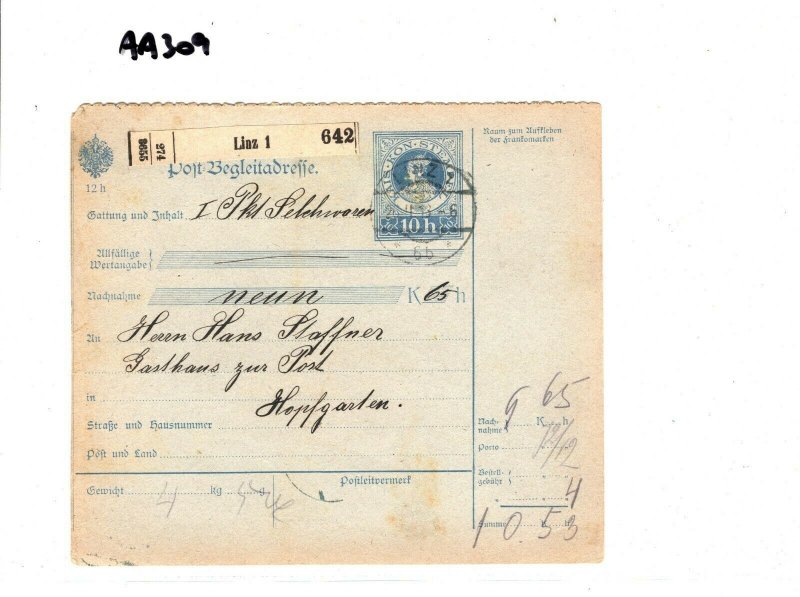 AA309
274
3655
Linz 1 642
KAIS·KÖN·STEMPEL
10 h
Raum zum Aufkleben
der Frankomarken
Post-Begleitadresse.
12 h
Gattung und Inhalt I Pkt Selchwaren
Allfällige
Wertangabe
Nachnahme neun K 65 h
An Herrn Hans Staffner
Gasthaus zur Post
in Hopfgarten.
Straße und Hausnummer
Post und Land
Gewicht 4 kg g
Postleitvermerk
Nach-
nahme 9 K 65 h
Porto
Bestell-
gebühr 4
Summe 10 53